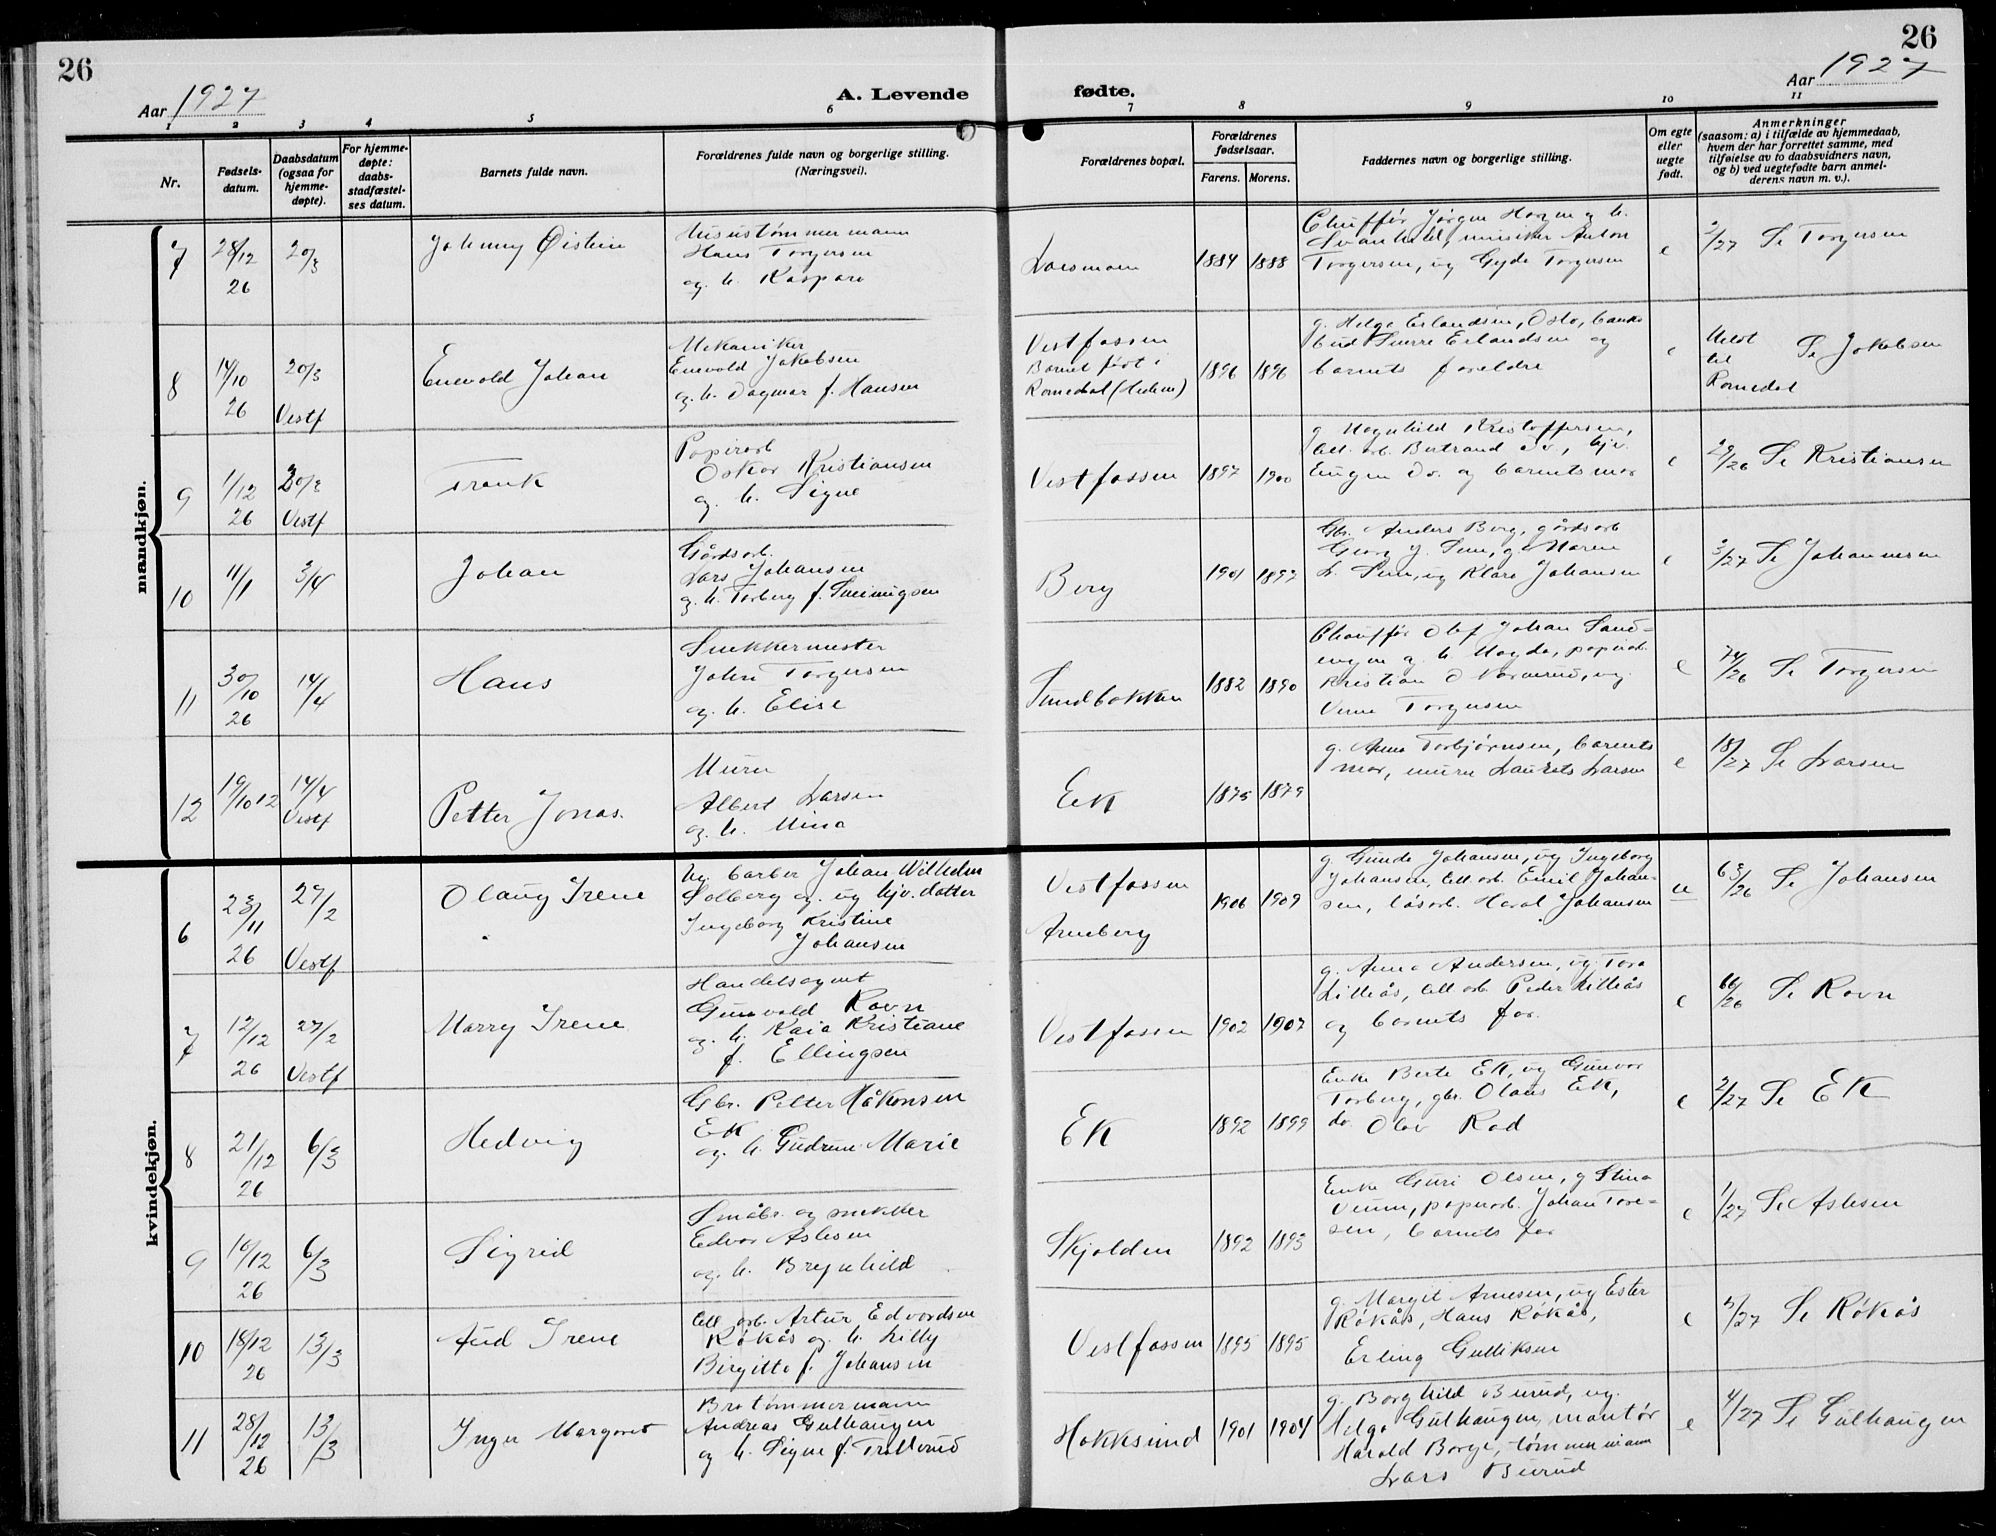 26
26
Aar 1927
A. Levende
fødte.
Aar 1927
1 2 3 4 5 6 7 8 9 10 11
Nr.
Fødsels-
datum.
Daabsdatum
(ogsaa for
hjemme-
døpte).
For hjemme-
døpte:
daabs-
stadfæstel-
ses datum.
Barnets fulde navn.
Forældrenes fulde navn og borgerlige stilling.
(Næringsvei).
Forældrenes bopæl.
Forældrenes
fødselsaar.
Farens. Morens.
Faddernes navn og borgerlige stilling.
Om egte
eller
uegte
født.
Anmerkninger
(saasom: a) i tilfælde av hjemmedaab,
hvem der har forrettet samme, med
tilføielse av to daabsvidners navn,
og b) ved uegtefødte barn anmel-
derens navn m. v.).
mandkjøn.
7 28/12 26 20/3 Johnny Øistein
Hustømmermann
Hans Torgersen
og h. Kaspara
1884 1888
Chuffør Jørgen Horgen g. h.
Svanhild, musiker Anton
Torgersen, ug Gyda Torgersen
e 2/27 Se Torgersen
8 14/10 26 20/3 Vestf Enevold Johan
Mekaniker
Enevold Jakobsen
og h. Dagmar f. Hansen
Vestfossen
Barnet født i
Romedal (Hedem)
1896 1896
g. Helga Erlandsen, Oslo, bank-
bud Sverre Erlandsen og
barnets foreldre
e Meldt
til
Romedal
Se Jakobsen
9 1/12 26 20/3 Vestf Frank
Papirarb
Oskar Kristiansen
og h. Signe
Vestfossen 1897 1900
g. Magnhild Kristoffersen,
cell. arb. Bertrand do., hjv.
Eugen do. og barnets mor
e 29/26 Se Kristiansen
10 11/1 3/4 Johan
Gårdsarb.
Lars Johansen
og h. Torberg f.
Berg 1901 1897
Gbr. Anders Berg, gårdsarb
Georg J. Sem, g. Maren
L. Sem, ug Klara Johansen
e 3/27 Se Johannesen
11 30/10 26 14/4 Hans
Snekkermester
John Torgersen
og h. Elise
Sundbakken 1882 1890
Chauffør Olaf Johan Sand-
engen g. h. Magda, papirarb
Kristian O Varnerud, ug.
Torgersen
e 74/26 Se Torgersen
12 19/10 12 14/4 Vestf Petter Jonas.
Murer
Albert Larsen
og h. Mina
Eek 1875 1879
g. Anna Torbjørnsen, barnets
mor, murer Laurits Larsen
e 18/27 Se Larsen
kvindekjøn.
6 23/11 26 27/2 Vestf Olaug Irene
Ug. barber Johan Wilhelm
Solberg og ug hjv. datter
Ingeborg Kristine
Johansen
Vestfossen
Arneberg
1906 1909
g. Gunda Johansen, ug Ingeborg
Johansen, cell. arb. Emil Johan-
sen, løsarb. Haral Johansen
u 63/26 Se Johansen
7 12/12 26 27/2 Vestf Marry Irene
Handelsagent
Gunvald Ravn
og h. Kaia Kristiane
f. Ellingsen
Vestfossen 1902 1907
g. Anna Andersen, ug Tora
Lilleås, cell arb. Peder Lilleås
og barnets far.
e 66/26 Se Ravn
8 21/12 26 6/3 Hedvig
Gbr. Petter Håkonsen
Ek
og h. Gudrun Marie
Ek 1892 1899
Enke Berte Ek, ug Gunvor
Torberg, gbr. Olaus Ek,
do Olav Rod
e 2/27 Se Ek
9 16/12 26 6/3 Sigrid
Småbr. og snekker
Edvar Aslesen
og h. Brynhild
Skjolden 1892 1893
Enke Guri Olsen, g Stina
papirarb. Johan Tore-
sen, barnets far
e 1/27 Se Aslesen
10 18/12 26 13/3 Aud Irene
Cell. arb. Artur Edvardsen
Røkås og h. Lilly
Birgitte f. Johansen
Vestfossen 1895 1895
g. Margit Arnesen, ug Ester
Røkås, Hans Røkås,
Erling Gulliksen
e 5/27 Se Røkås
11 28/12 26 13/3 Inger Margaret
Brotømmermann
Andreas Gulhaugen
og h. Signe f. Trollerud
Hokksund 1901 1904
g. Borghild Burud, ug.
Helga Gulhaugen, montør
Harald Borge, tømmermann
Lars Burud
e 4/27 Se Gulhaugen